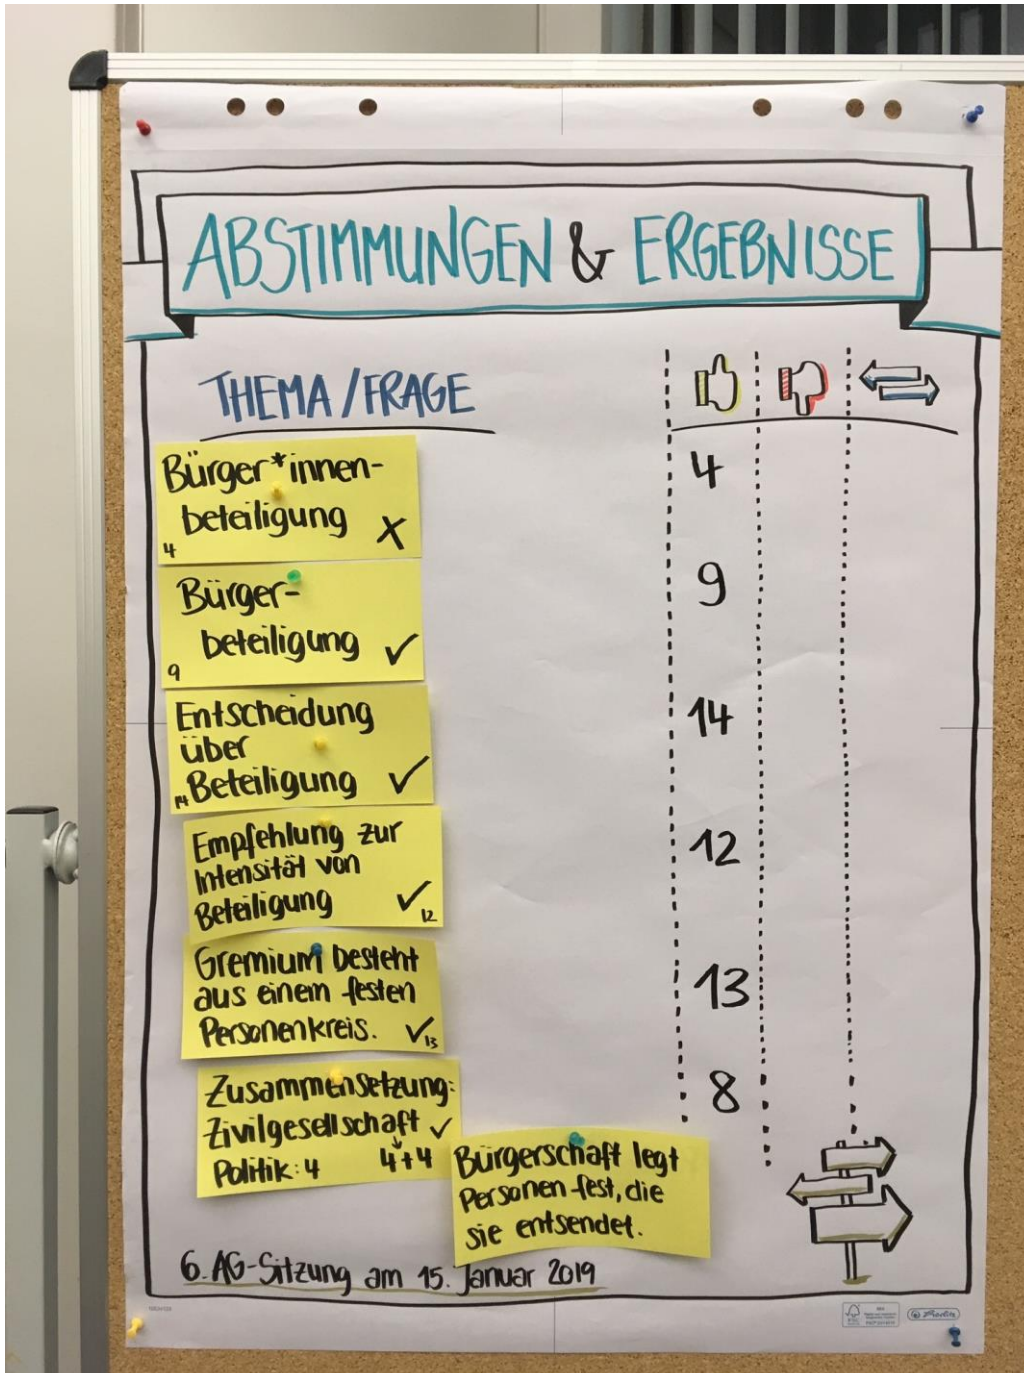 ABSTIMMUNGEN & ERGEBNISSE
THEMA/FRAGE
Bürger*innen-
beteiligung X
4
4
Bürger-
beteiligung ✓
9
9
Entscheidung
über
Beteiligung ✓
14
14
Empfehlung zur
Intensität von
Beteiligung ✓
12
12
Gremium besteht
aus einem festen
Personenkreis. ✓
13
13
Zusammensetzung:
Zivilgesellschaft ✓
Politik: 4 4+4
8
Bürgerschaft legt
Personen fest, die
sie entsendet.
6. AG-Sitzung am 15. Januar 2019
FSC
Herlitz